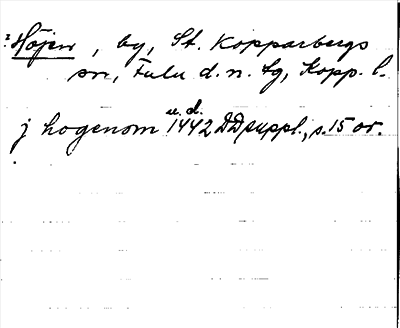 Höjen, by, St. Kopparbergs
sn, Falu d. n. tg, Kopp. l.
u. d.
j hogenom 1442 DD suppl., s. 15 or.